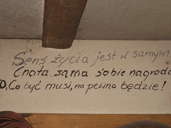 Sens życia jest w samym
Cnota sama sobie nagrodą
O, Co być musi, na pewno będzie!